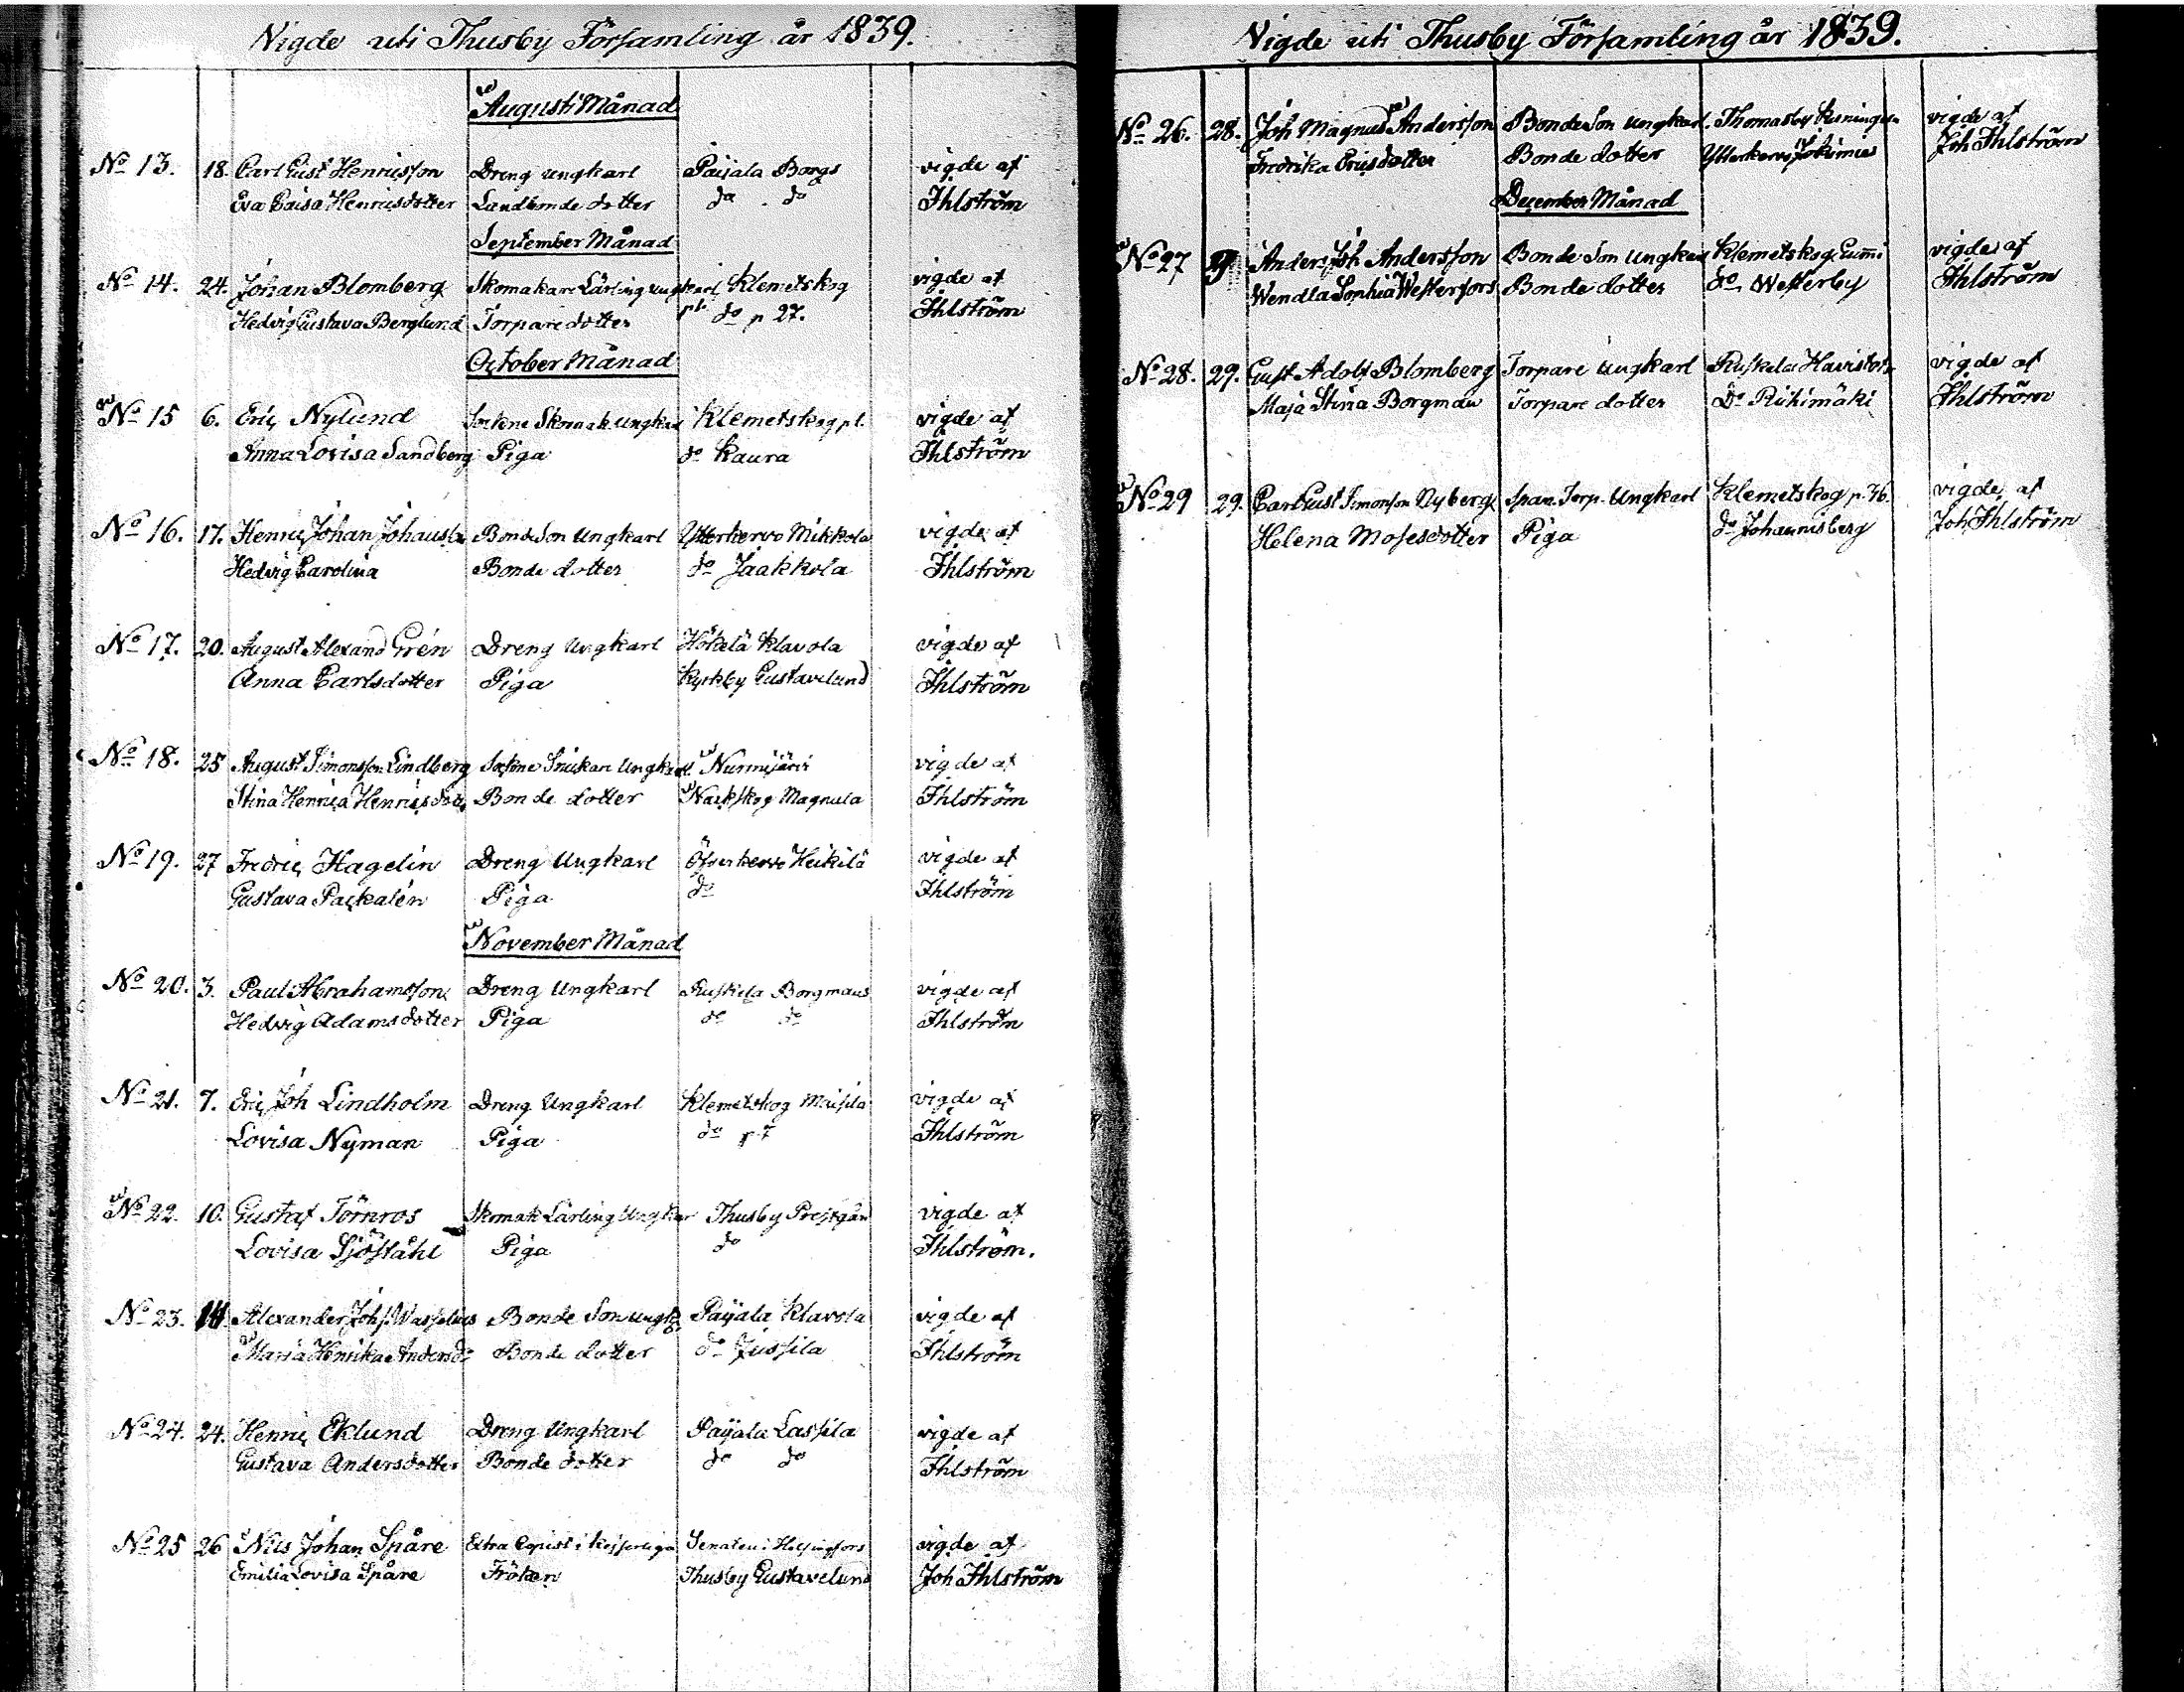 Vigde uti Thusby Församling år 1839.
Augusti Månad
No 13. 18. Carl Gust Henricsson Dreng ungkarl Paijala Borgs vigde af
Eva Caisa Henricsdotter Landbonde dotter do do Ihlström
September Månad
No 14. 24. Johan Blomberg Skomakare Lärling ungkarl Klemetskog vigde af
Hedvig Gustava Berglund Torpare dotter do p 27. Ihlström
October Månad
No 15 6. Eric Nylund Sockne Skomak. Ungkarl Klemetskog vigde af
Anna Lovisa Sandberg Piga do Kaura Ihlström
No 16. 17. Henric Johan Bonde Son Ungkarl Ytterkervo Mikkola vigde af
Hedvig Carolina Bonde dotter do Jaakkola Ihlström
No 17. 20. August Alexand Grén Dreng Ungkarl Hökelä Klavola vigde af
Anna Carlsdotter Piga Kyrkby Gustavelund Ihlström
No 18. 25 August Simonsson Lindberg Sockne Snickare Ungkarl Nurmijärvi vigde af
Stina Henrica Henricsdotter Bonde dotter Magnula Ihlström
No 19. 27 Fredric Hagelin Dreng Ungkarl Öfverkervo Heikilä vigde af
Gustava Packalén Piga do Ihlström
November Månad
No 20. 3. Paul Abrahamsson Dreng Ungkarl Ruskela Borgmans vigde af
Hedvig Adamsdotter Piga do do Ihlström
No 21. 7. Eric Joh Lindholm Dreng Ungkarl Klemetskog vigde af
Lovisa Nyman Piga do p. 7 Ihlström
No 22. 10. Gustaf Törnros Skomak Lärling Ungkar Thusby Prestgård vigde af
Lovisa Sjöståhl Piga do Ihlström.
No 23. Alexander Bonde Son ungk Paijala Klavola vigde af
Maria Henrika Bonde dotter do Jussila Ihlström
No 24. 24. Henric Eklund Dreng Ungkarl Paijala Lassila vigde af
Gustava Andersdotter Bonde dotter do do Ihlström
No 25 26 Nils Johan Spåre Extra Copist i Kejserliga Senaten i Helsingfors vigde af
Emilia Lovisa Spåre Fröken Thusby Gustavelund Joh Ihlström
Vigde uti Thusby Församling år 1839.
No 26. 28. Joh Magnus Andersson Bonde Son ungkarl Thomasby vigde af
Fredrika Ericsdotter Bonde dotter Ytterkervo Joh Ihlström
December Månad
No 27 Anders Joh Andersson Bonde Son Ungkarl Klemetskog Gummi vigde af
Wendla Sophia Westerfors Bonde dotter do Westerby Ihlström
No 28. 29. Gust Adolf Blomberg Torpare ungkarl Ruskela vigde af
Maja Stina Borgman Torpare dotter Do Riihimäki Ihlström
No 29 29. Carl Gust Simonson Nyberg Torp. Ungkarl Klemetskog p. 76. vigde af
Helena Mosesdotter Piga do Johannisberg Joh Ihlström